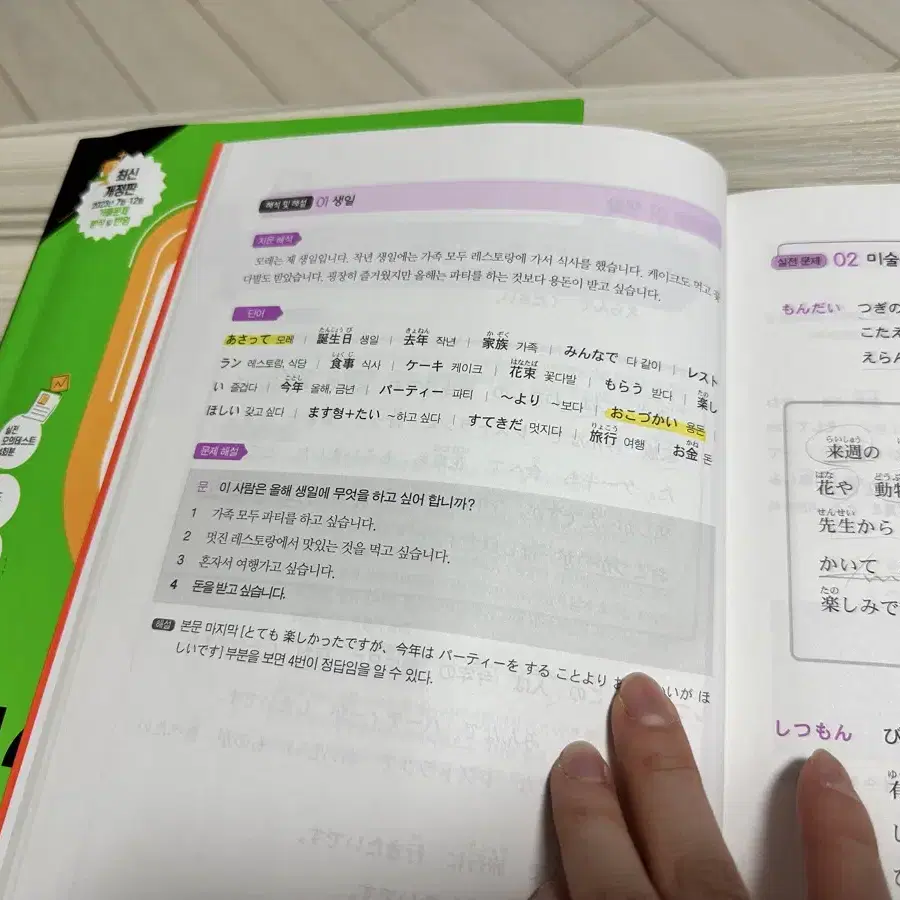 최신
개정판
해석 및 해설 01 생일
지문 해석
모레는 제 생일입니다. 작년 생일에는 가족 모두 레스토랑에 가서 식사를 했습니다. 케이크도 먹고 꽃
다발도 받았습니다. 굉장히 즐거웠지만 올해는 파티를 하는 것보다 용돈이 받고 싶습니다.
단어
あさって 모레 | 誕生日 생일 | 去年 작년 | 家族 가족 | みんなで 다 같이 | レスト
たんじょう び きょねん か ぞく
ラン 레스토랑, 식당 | 食事 식사 | ケーキ 케이크 | 花束 꽃다발 | もらう 받다 | 楽し
しょく じ はなたば たの
い 즐겁다 | 今年 올해, 금년 | パーティー 파티 | ～より ~보다 | おこづかい 용돈 |
ことし
ほしい 갖고 싶다 | ます形+たい ~하고 싶다 | すてきだ 멋지다 | 旅行 여행 | お金 돈
りょこう かね
문제 해설
문 이 사람은 올해 생일에 무엇을 하고 싶어 합니까?
1 가족 모두 파티를 하고 싶습니다.
2 멋진 레스토랑에서 맛있는 것을 먹고 싶습니다.
3 혼자서 여행가고 싶습니다.
4 돈을 받고 싶습니다.
해설 본문 마지막 [とても 楽しかったですが、今年は パーティーを する ことより
がほ
しいです] 부분을 보면 4번이 정답임을 알 수 있다.
실전 문제 02 미술
もんだい つぎの
こたえ
えらん
らいしゅう
来週の
はな どうぶ
花や 動物
せんせい
先生から
かいて
たの
楽しみで
しつもん び